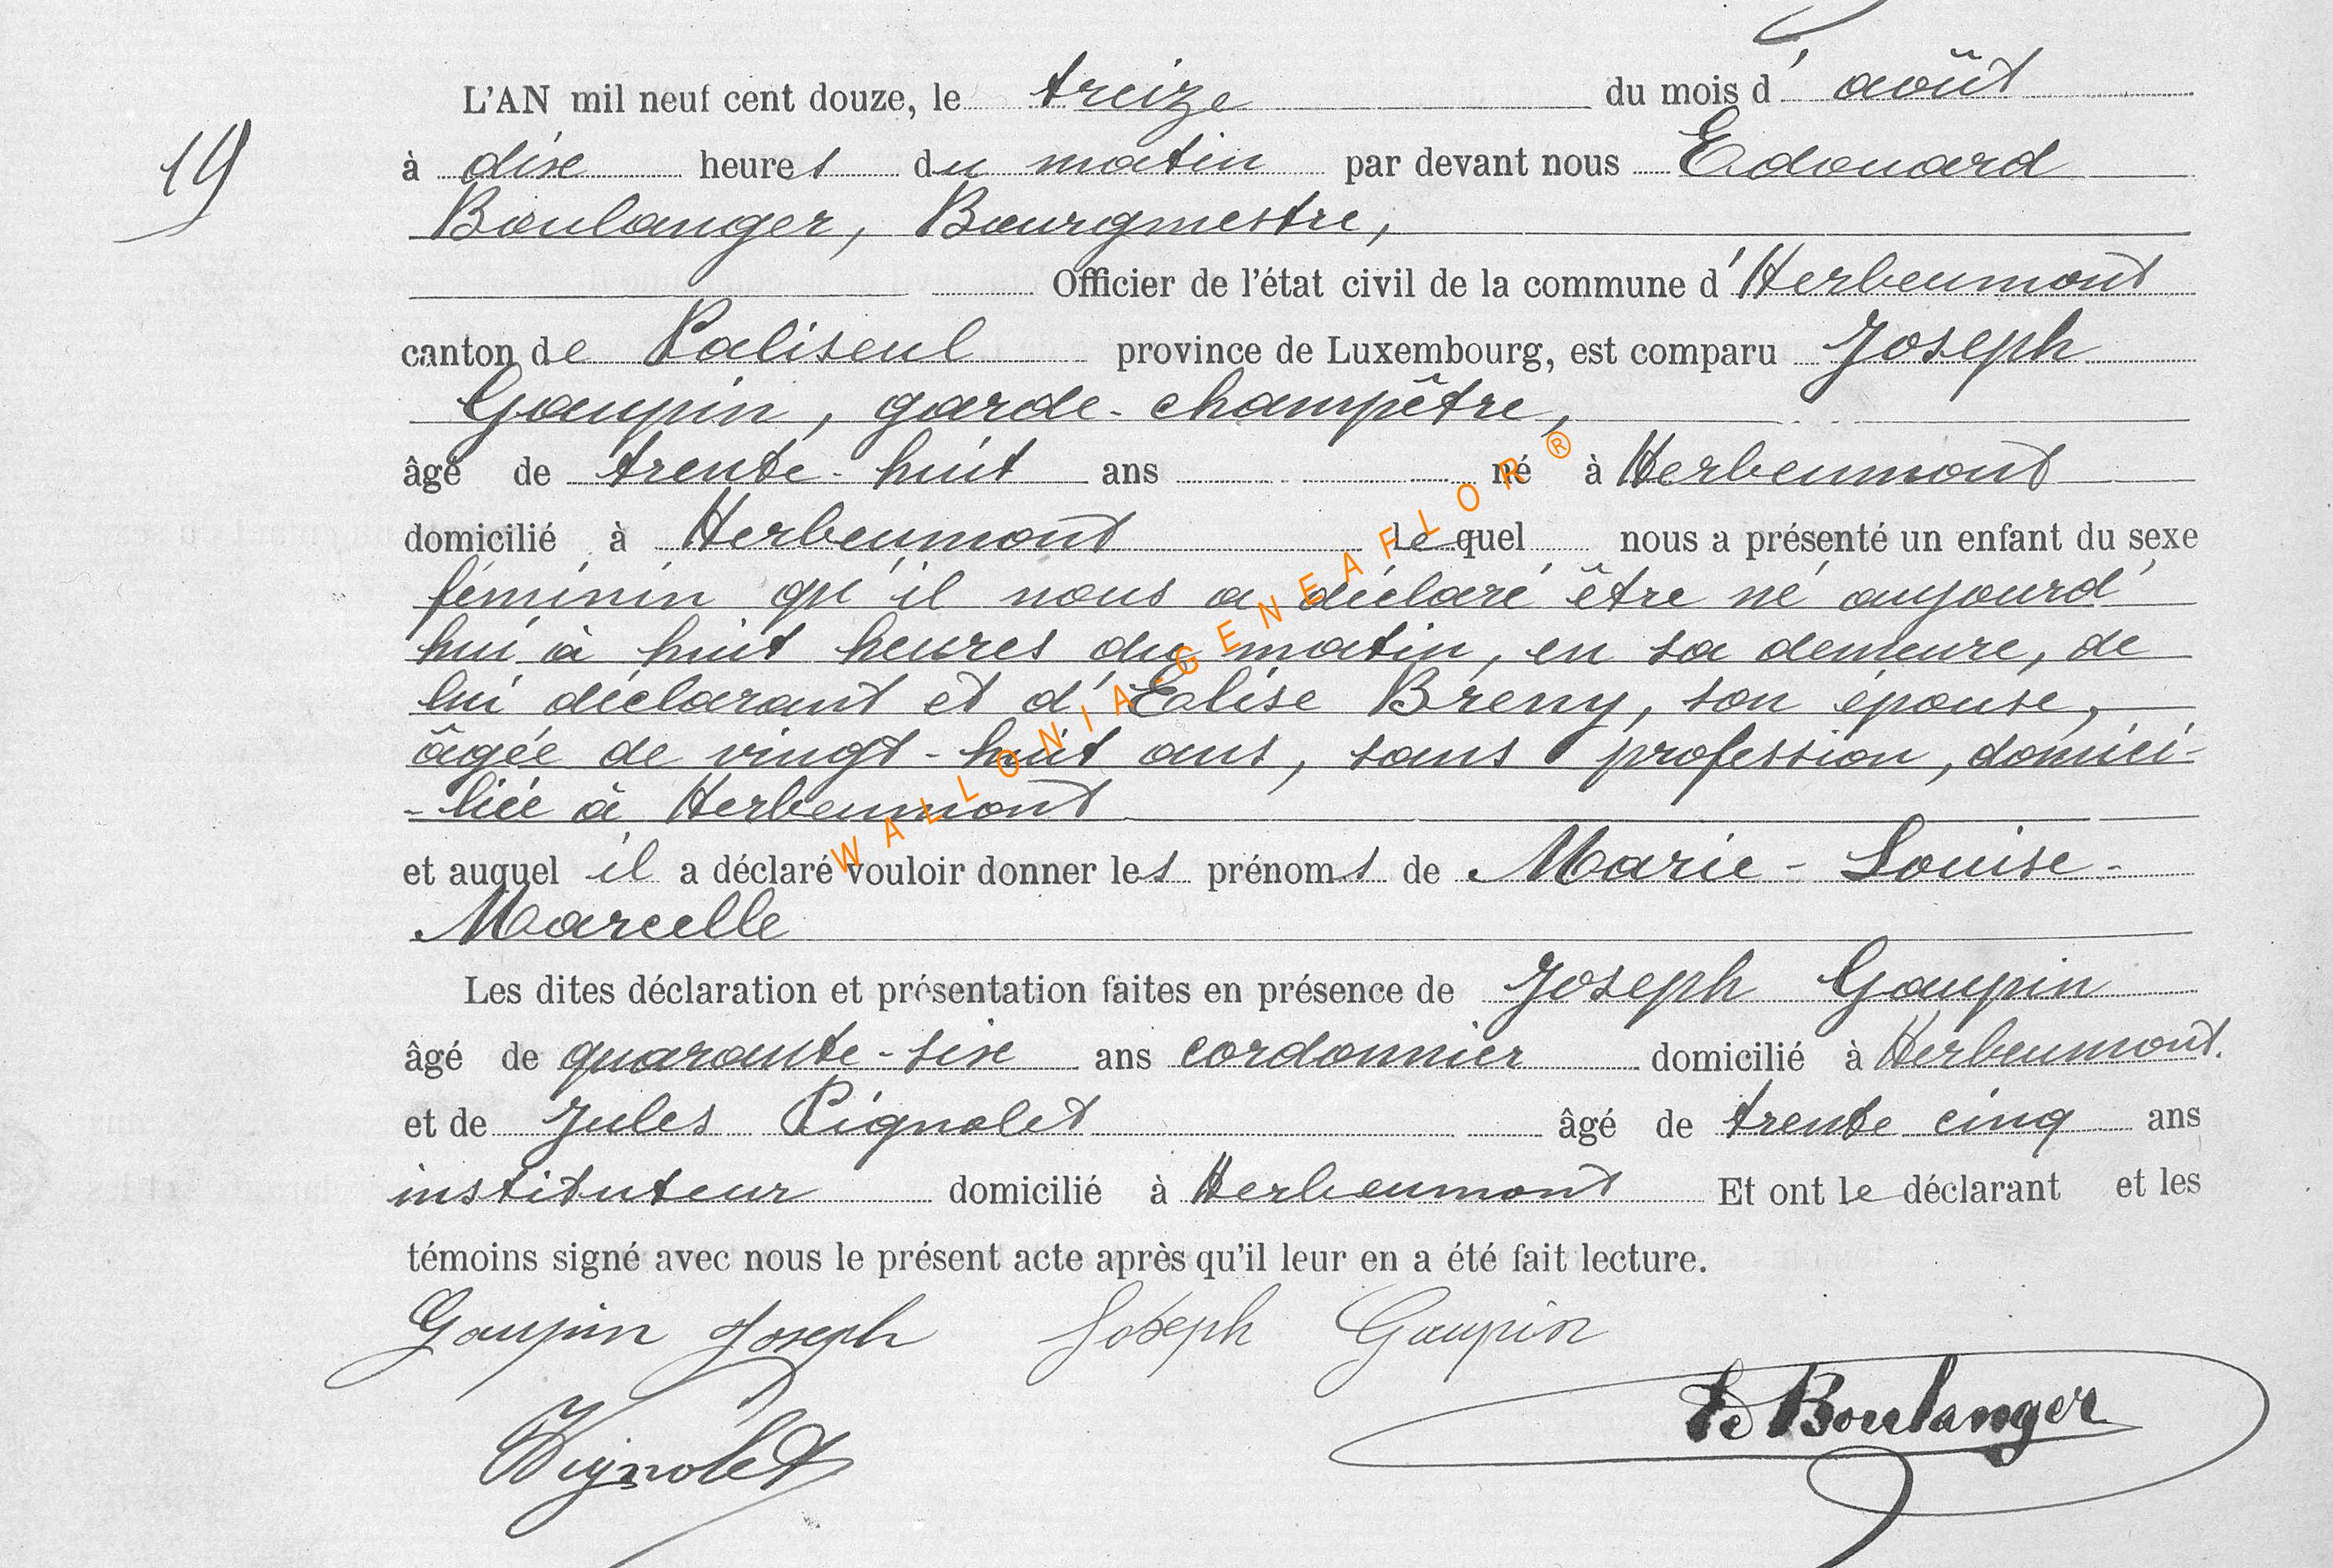 L'AN mil neuf cent douze, le treize du mois d'août
19
à dix heures du matin par devant nous Edouard
Boulanger, Bourgmestre,
Officier de l'état civil de la commune d'Herbeumont
canton de Paliseul province de Luxembourg, est comparu Joseph
Goupin, garde-champêtre,
âgé de trente-huit ans né à Herbeumont
domicilié à Herbeumont lequel nous a présenté un enfant du sexe
féminin qu'il nous a déclaré être né aujourd'
hui à huit heures du matin, en sa demeure, de
lui déclarant et d'Ealise Brény, son épouse,
âgée de vingt-huit ans, sans profession, domici-
-liée à Herbeumont
et auquel il a déclaré vouloir donner les prénoms de Marie-Louise-
Marcelle
Les dites déclaration et présentation faites en présence de Joseph Goupin
âgé de quarante-six ans cordonnier domicilié à Herbeumont.
et de Jules Pignolet âgé de trente cinq ans
instituteur domicilié à Herbeumont Et ont le déclarant et les
témoins signé avec nous le présent acte après qu'il leur en a été fait lecture.
Goupin Joseph Joseph Goupin
JPignolet Ed Boulanger
WALLONIA-GENEAFLOR®